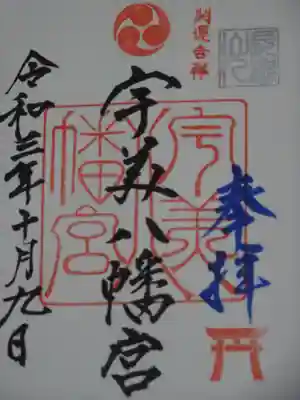 開運吉祥
奉拝
宇美八幡宮
宇美
八幡宮
令和三年十月九日